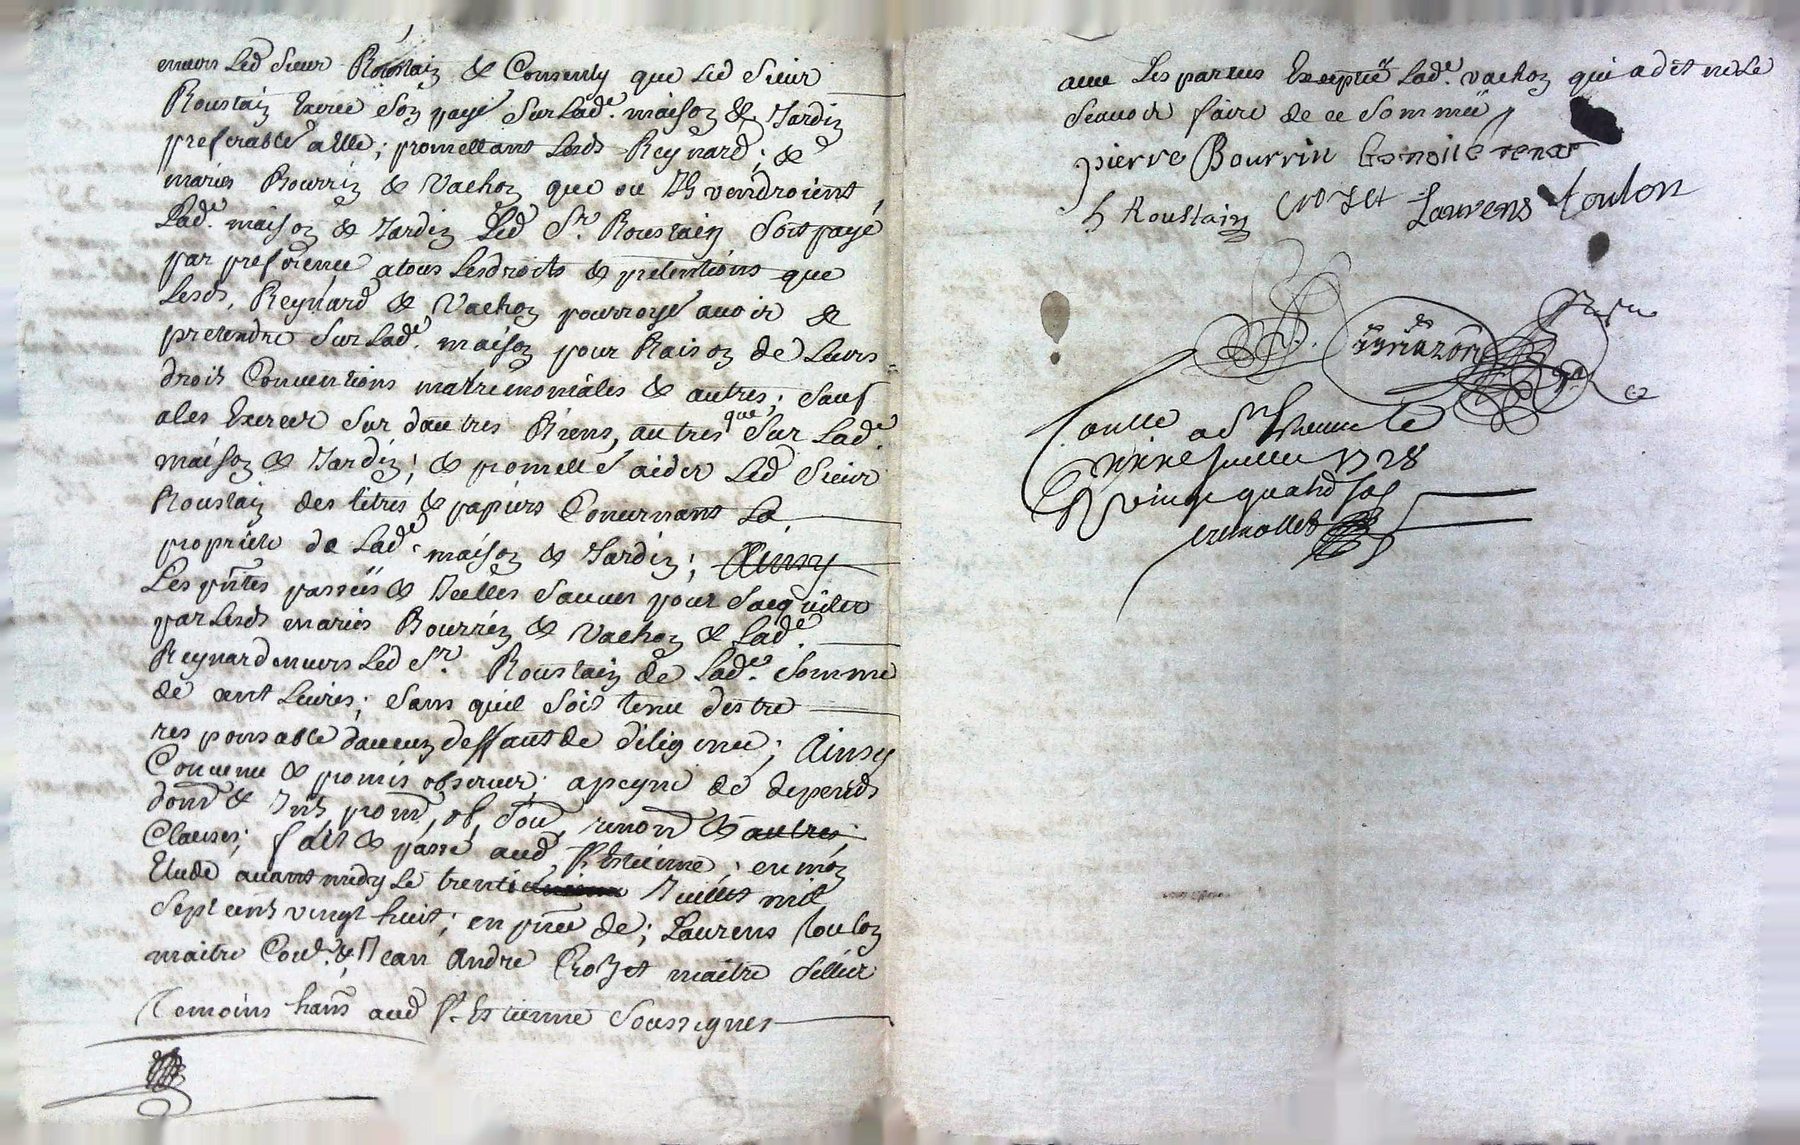 envers Led Sieur Roustaiz & Consenty que Led Sieur
Roustaiz Exerce Soz payé Sur Lade. maisoz & Jardiz
preferable a Elle; promettant Lesds Reynard, & d
mariés Bourriz & Vachoz que ou Ils vendroient
Lade. maisoz & Jardiz Led Sr. Roustaiz Soit payé
par preferance atous Lesdroits & pretentions que
Lesds. Reynard & Vachoz pourroyt avoir &
pretendre Sur Lade. maisoz pour Raisoz de Leurs
droits Conventions matrimoniales & autres; Sauf
ales Exercer Sur dautres Biens, autres que Sur Lade.
maisoz & Jardiz; & promettre S'aider Led Sieur
Roustaiz des titres & papiers Concernant La
proprieté de Lade. maisoz & Jardiz; Ainsy
Les pntes passées & Icelles Sauver pour Sacquiter
par Lesds mariés Bourriz & Vachoz & Lade.
Reynard envers Led Sr. Roustaiz de Lade. Somme
de cent Livres; Sans quil Soit tenu destre
responsable daucuz deffaut de diligence; Ainsy
Convenu & promis observer; apeyne de depends
dom & Ints prom, ob, Soum, renond & autres
Clauses; fait & passé aud St Estienne; en moz
Etude avant midy Le trente Juillet mil
Sept cent vingt huit; en pnce de; Laurens Touloz
maitre Cord. & Jean Andre Crozet maitre Sellier
Temoins hants aud St. Estienne Soussignes
avec Les parties Exceptée Lade. vachoz qui a dit ne Le
Scavoir faire de ce Sommée
pierre Bourrin benoite renar
h Roustaiz Crozet Laurens toulon
Conlle a St Etienne le
juillet 1728
R vingt quatre sols